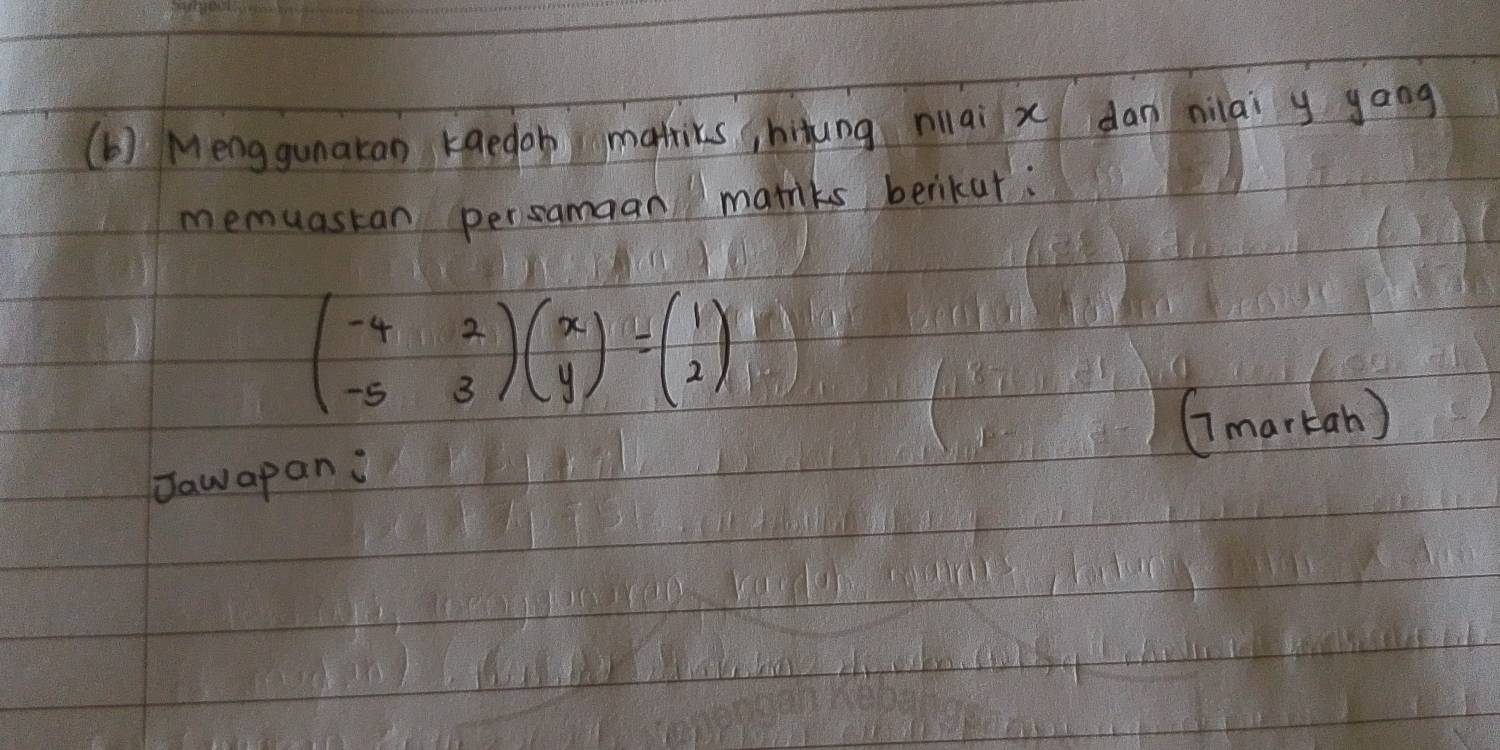 (b) Menggunakan kaedah matriks, hitung nilai x dan nilai y yang
memuaskan persamaan matriks berikut:
(-4 2) (x) = (1)
(-5 3) (y) (2)
(7 markah)
Jawapan: